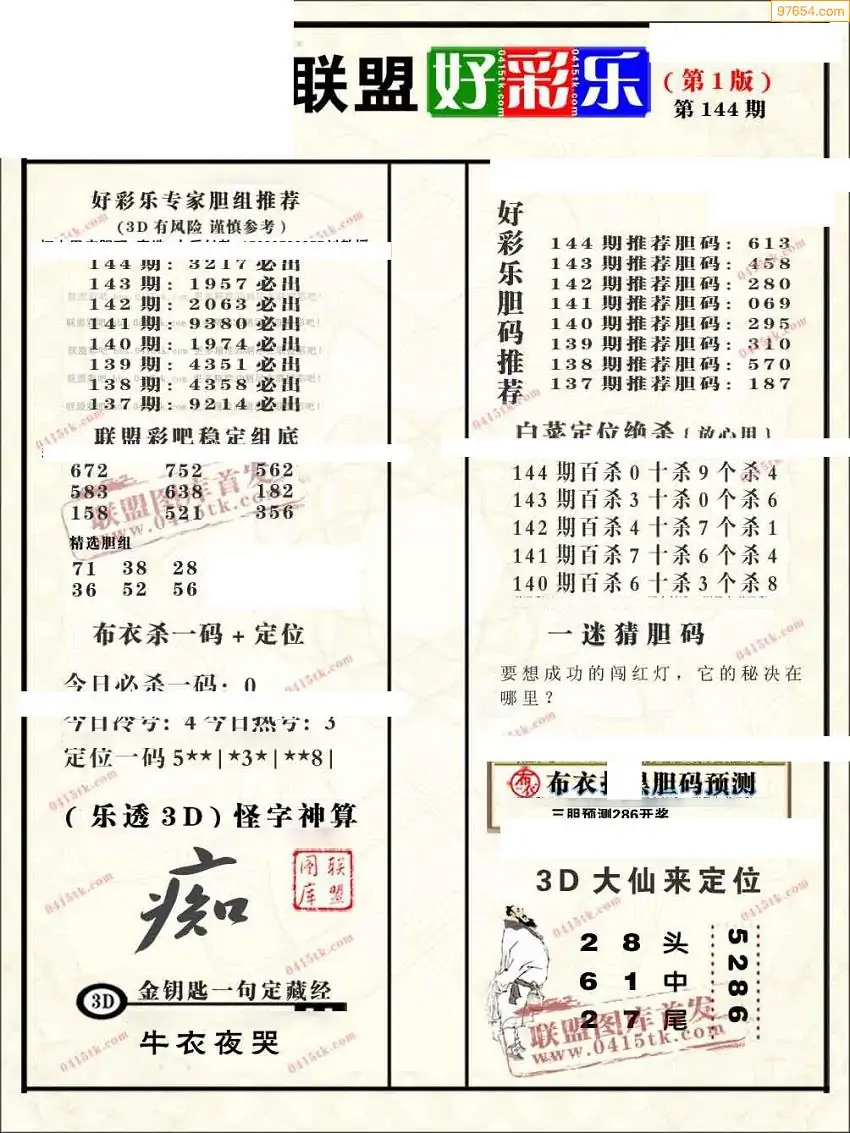 97654.com
联盟好彩乐
(第1版)
第144期
好彩乐专家胆组推荐
(3D有风险 谨慎参考)
144期: 3217必出
143期: 1957必出
142期: 2063必出
141期: 9380必出
140期: 1974必出
139期: 4351必出
138期: 4358必出
137期: 9214必出
联盟彩吧稳定组底
672 752 562
583 638 182
158 521 356
精选胆组
71 38 28
36 52 56
布衣杀一码+定位
今日必杀一码: 0
今日冷号: 4 今日热号: 3
定位一码 5**|*3*|**8|
(乐透3D)怪字神算
痴
联盟图库
3D 金钥匙一句定藏经
牛衣夜哭
好彩乐胆码推荐
144期推荐胆码: 613
143期推荐胆码: 458
142期推荐胆码: 280
141期推荐胆码: 069
140期推荐胆码: 295
139期推荐胆码: 310
138期推荐胆码: 570
137期推荐胆码: 187
白菜定位绝杀{放心用}
144期百杀0十杀9个杀4
143期百杀3十杀0个杀6
142期百杀4十杀7个杀1
141期百杀7十杀6个杀4
140期百杀6十杀3个杀8
一迷猜胆码
要想成功的闯红灯，它的秘决在
哪里？
布衣 布衣 胆码预测
三胆预测286开奖
3D大仙来定位
2 8 头
6 1 中
2 7 尾
5286
联盟图库首发
www.0415tk.com
联盟图库首发
www.0415tk.com
0415tk.com